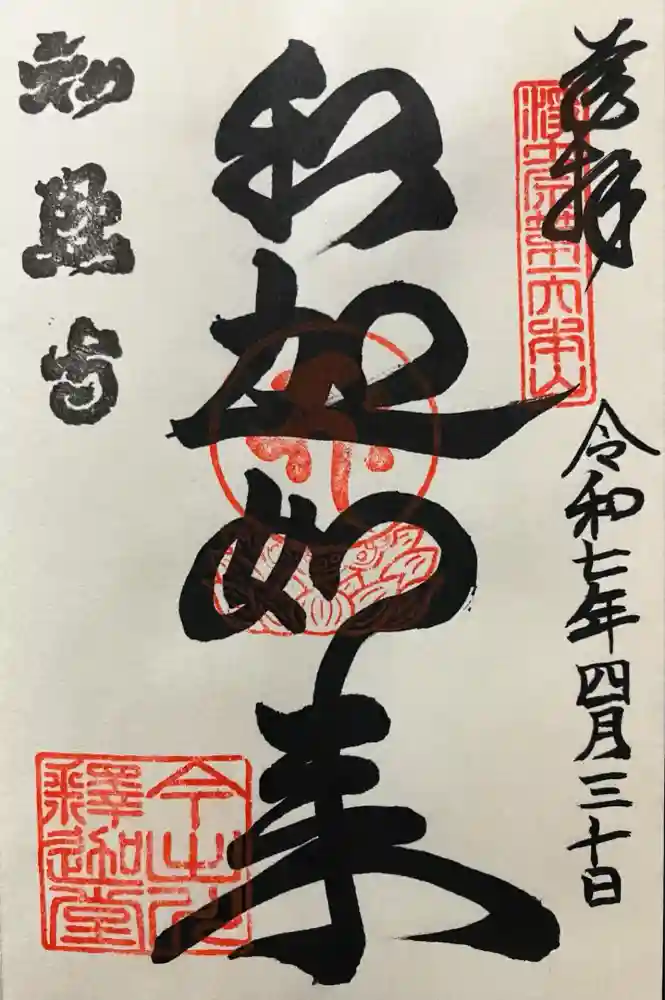 奉拝
令和七年四月三十日
釈迦如来
知恩寺
今出川
釋迦堂